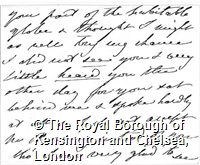 your part of the habitable
globe & thought I might
as well try my chance
I did not see you & very
little heard you the
other day for you sat
behind me & spoke hardly
at
© The Royal Borough of
Kensington and Chelsea,
London
very glad